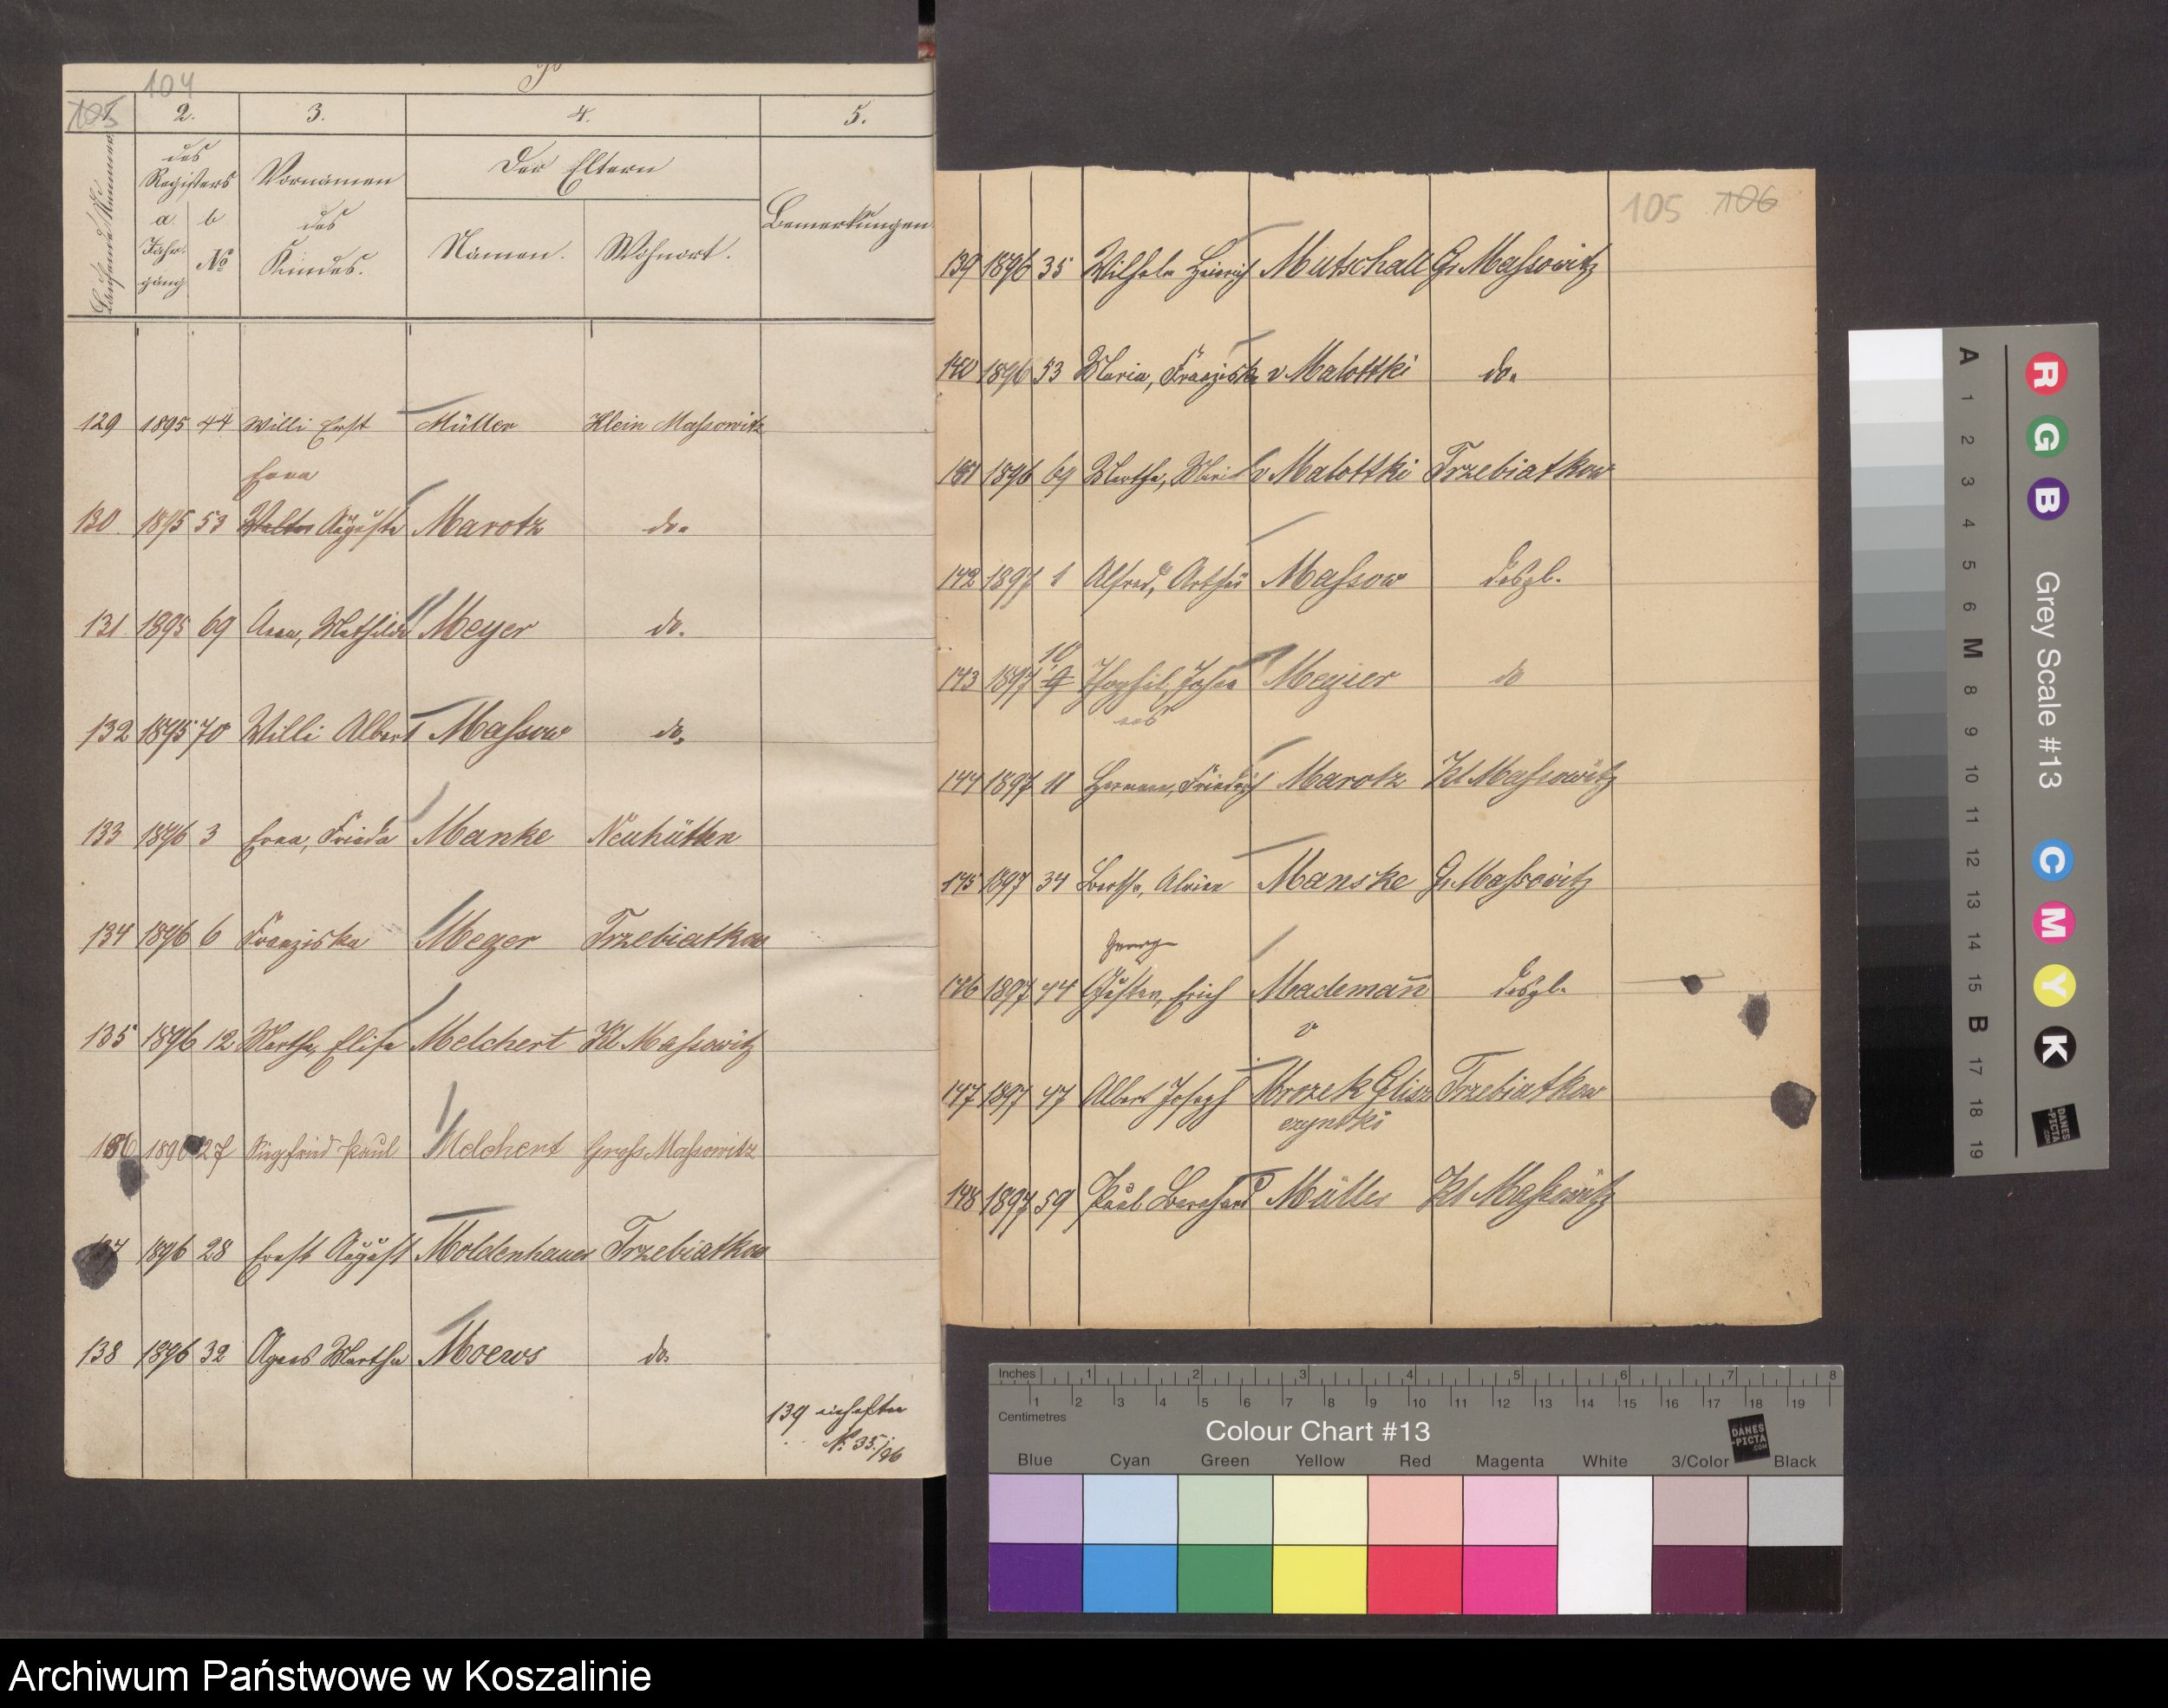 104
105
1. 2. 3. 4. 5.
Laufende Nummer
des Registers
a. Jahrgang
b No
Vornamen des Kindes.
Der Eltern
Namen. Wohnort.
Bemerkungen
129 1895 44 Willi Ernst Müller Klein Massowitz
Erna
130. 1895 53 Walter Auguste Marotz do.
131. 1895 69 Anna, Mathilde Meyer do.
132 1895 70 Willi Albert Massow do.
133 1896 3 Erna, Frieda Manke Neuhütten
134 1896 6 Franziska Meyer Trzebiatkow
135 1896 12 Martha, Elise Melchert Kl Massowitz
136 1896 27 Siegfried Paul Melchert Gross Massowitz
137 1896 28 Ernst August Moldenhauer Trzebiatkow
138 1896 32 Agnes Martha Moews do.
139 einheften
No 35./96
105 106
139 1896 35 Wilhelm Heinrich Mutschall Gr Massowitz
140 1896 53 Maria, Franziska v Malottki do.
141 1896 69 Martha, Maria v Malottki Trzebiatkow
142 1897 1 Alfred, Arthur Massow desgl.
10
143 1897 9 Theophil, Johannes Meyier do
144 1897 11 Hermann, Friedrich Marotz Kl Massowitz
145 1897 34 Bertha, Alwine Manske Gr Massowitz
George
146 1897 44 Gustav, Erich Mademann desgl.
v
147 1897 47 Albert Joseph Mrozek Glisz Trzebiatkow
czynski
148 1897 59 Paul Bernhard Müller Kl Massowitz
A 1 2 3 4 5 6 M 8 9 10 11 12 13 14 15 B 17 18 19
R G B Grey Scale #13 C M Y K
DANES
-PICTA
.COM
Inches 1 2 3 4 5 6 7 8
1 2 3 4 5 6 7 8 9 10 11 12 13 14 15 16 17 18 19
Centimetres
Colour Chart #13
DANES
-PICTA
.COM
Blue Cyan Green Yellow Red Magenta White 3/Color Black
Archiwum Państwowe w Koszalinie